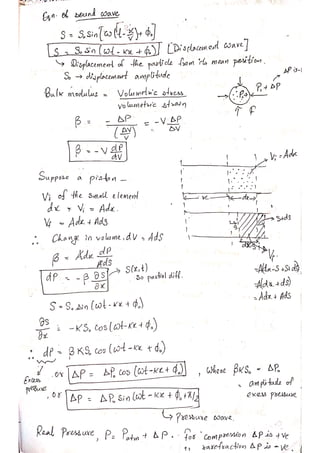 Eqn. of sound wave
S = S₀ sin[ω(t - x/v) + ϕ₀]
S = S₀ sin(ωt - kx + ϕ₀) [Displacement wave]
↳ Displacement of the particle from its mean position.
S₀ → displacement amplitude
Bulk modulus = Volumetric stress / volumetric strain
P₀ + ΔP
F
β = - ΔP / (ΔV / V) = -V ΔP / ΔV
β = -V dP/dV
Vi = Adx
Suppose a piston -
Vi of the small element
dx = Vi = Adx.
Vf = Adx + Ads
x dx
s+ds
∴ Change in volume, dV = Ads
Vf
β = - Adx dP / Ads
= A(dx - s + s + ds)
= A(dx + ds)
= Adx + Ads
dP = -β ∂s/∂x
S(x,t)
so partial diff.
S = S₀ sin(ωt - kx + ϕ₀)
∂s/∂x = -KS₀ cos(ωt - kx + ϕ₀)
∴ dP = βKS₀ cos(ωt - kx + ϕ₀)
Excess pressure
or ΔP = ΔP₀ cos(ωt - kx + ϕ₀), where βKS₀ = ΔP₀
= amplitude of excess pressure
or ΔP = ΔP₀ sin(ωt - kx + ϕ₀ + π/2)
↳ Pressure wave.
Real Pressure, P = Patm + ΔP. for compression ΔP is +ve
" rarefraction ΔP is -ve.